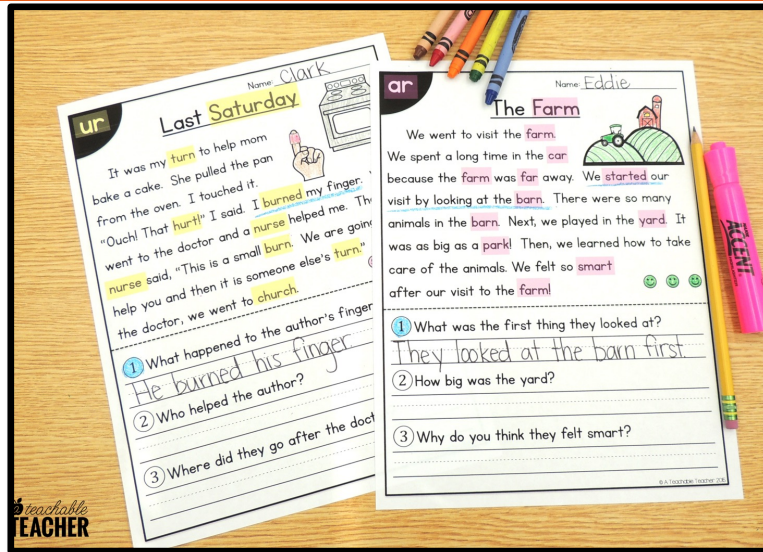 ur
Name: Clark
Last Saturday
It was my turn to help mom
bake a cake. She pulled the pan
from the oven. I touched it.
"Ouch! That hurt!" I said. I burned my finger.
went to the doctor and a nurse helped me. Th
nurse said, "This is a small burn. We are goin
help you and then it is someone else's turn."
the doctor, we went to church.
1 What happened to the author's finger
He burned his finger
2 Who helped the author?
3 Where did they go after the doct
ar
Name: Eddie
The Farm
We went to visit the farm.
We spent a long time in the car
because the farm was far away. We started our
visit by looking at the barn. There were so many
animals in the barn. Next, we played in the yard. It
was as big as a park! Then, we learned how to take
care of the animals. We felt so smart
after our visit to the farm!
1 What was the first thing they looked at?
They looked at the barn first.
2 How big was the yard?
3 Why do you think they felt smart?
© A Teachable Teacher 2015
ACCENT
a teachable
TEACHER